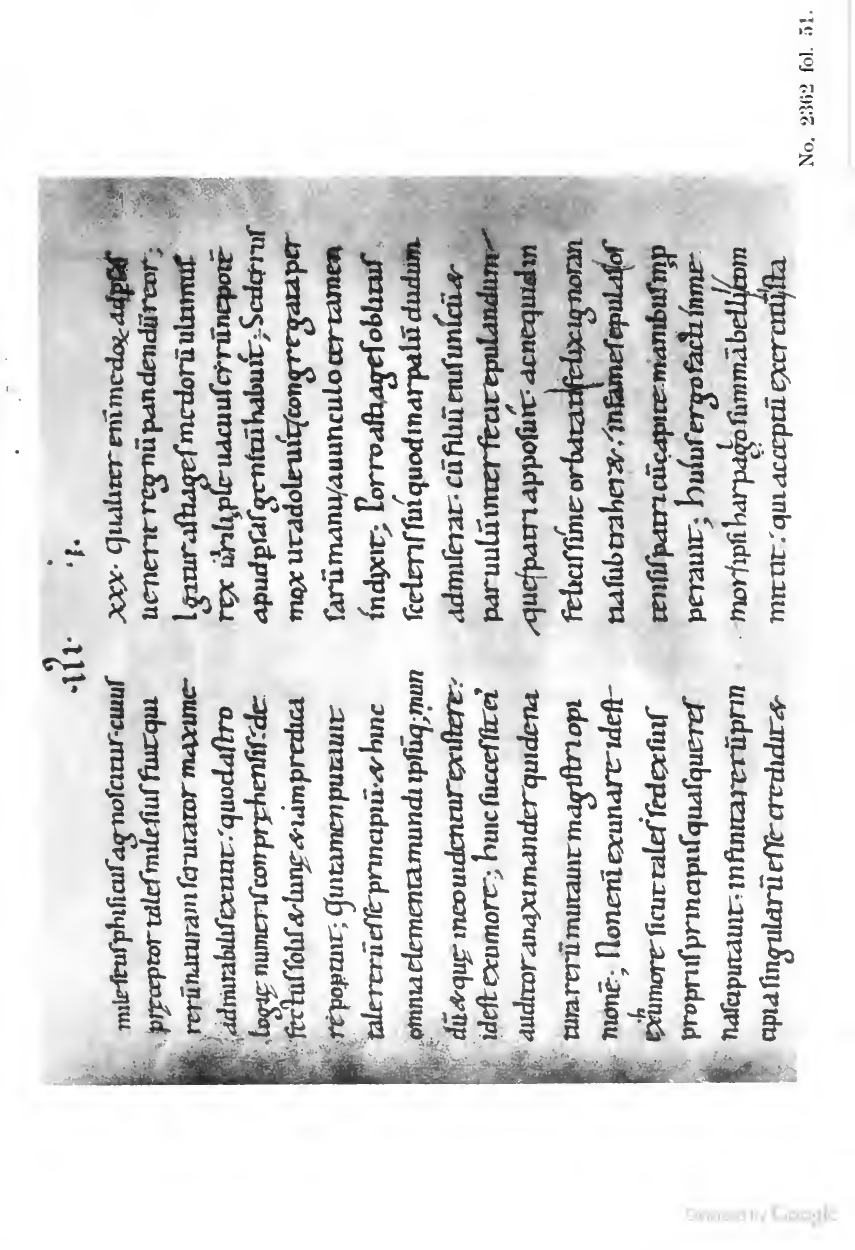 No. 2362 fol. 51.
milesius phisicus agnoscitur· cuius
pręceptor tales milesius fuit qui
rerū naturam scrutator maxime·
admirabilis extitit: quod astro
logię numeris conprehensis: de
fectus solis & lunę & iam predica
re potuit; qui tamen putauit
tale rerū esse principiū· & hinc
omnia elementa mundi ipsūq; mun
dū & quę in eo uidentur existere:
id est ex umore; huic successit ei
auditor anaximander qui de na
tura rerū mutauit magistri opi
nionē; Non enī ex una re id est
ex umore sicut tales sed ex suis
propriis principiis quasque res
nasci putauit: infinita rerū prin
cipia singularū esse credidit &
xxx· qualiter enī ad
uenerit regnū pandendū reor;
Igitur astiages medorū ultimus
rex ipse uacuus cyrū nepotē
apud psas genitū habuit; Sed cyrus
mox ut adoleuit/ congregata per
sarū manu/ auunculo certamen
indixit; Porro astiages oblitus
sceleris sui quod in arpalū dudum
admiserat· cū filiū eius unicū &
paruulū interfecit epulandum
que/ patri apposuit· ac ne quid in
felicissime orbitati felix ignoran
tia sub traher&: infames epulas/os
tensis patri cū capite manibus
perauit; huius ergo facti inme
mor/ ipsi harpago summā belli com
mittit: qui acceptū exercitū/ sta